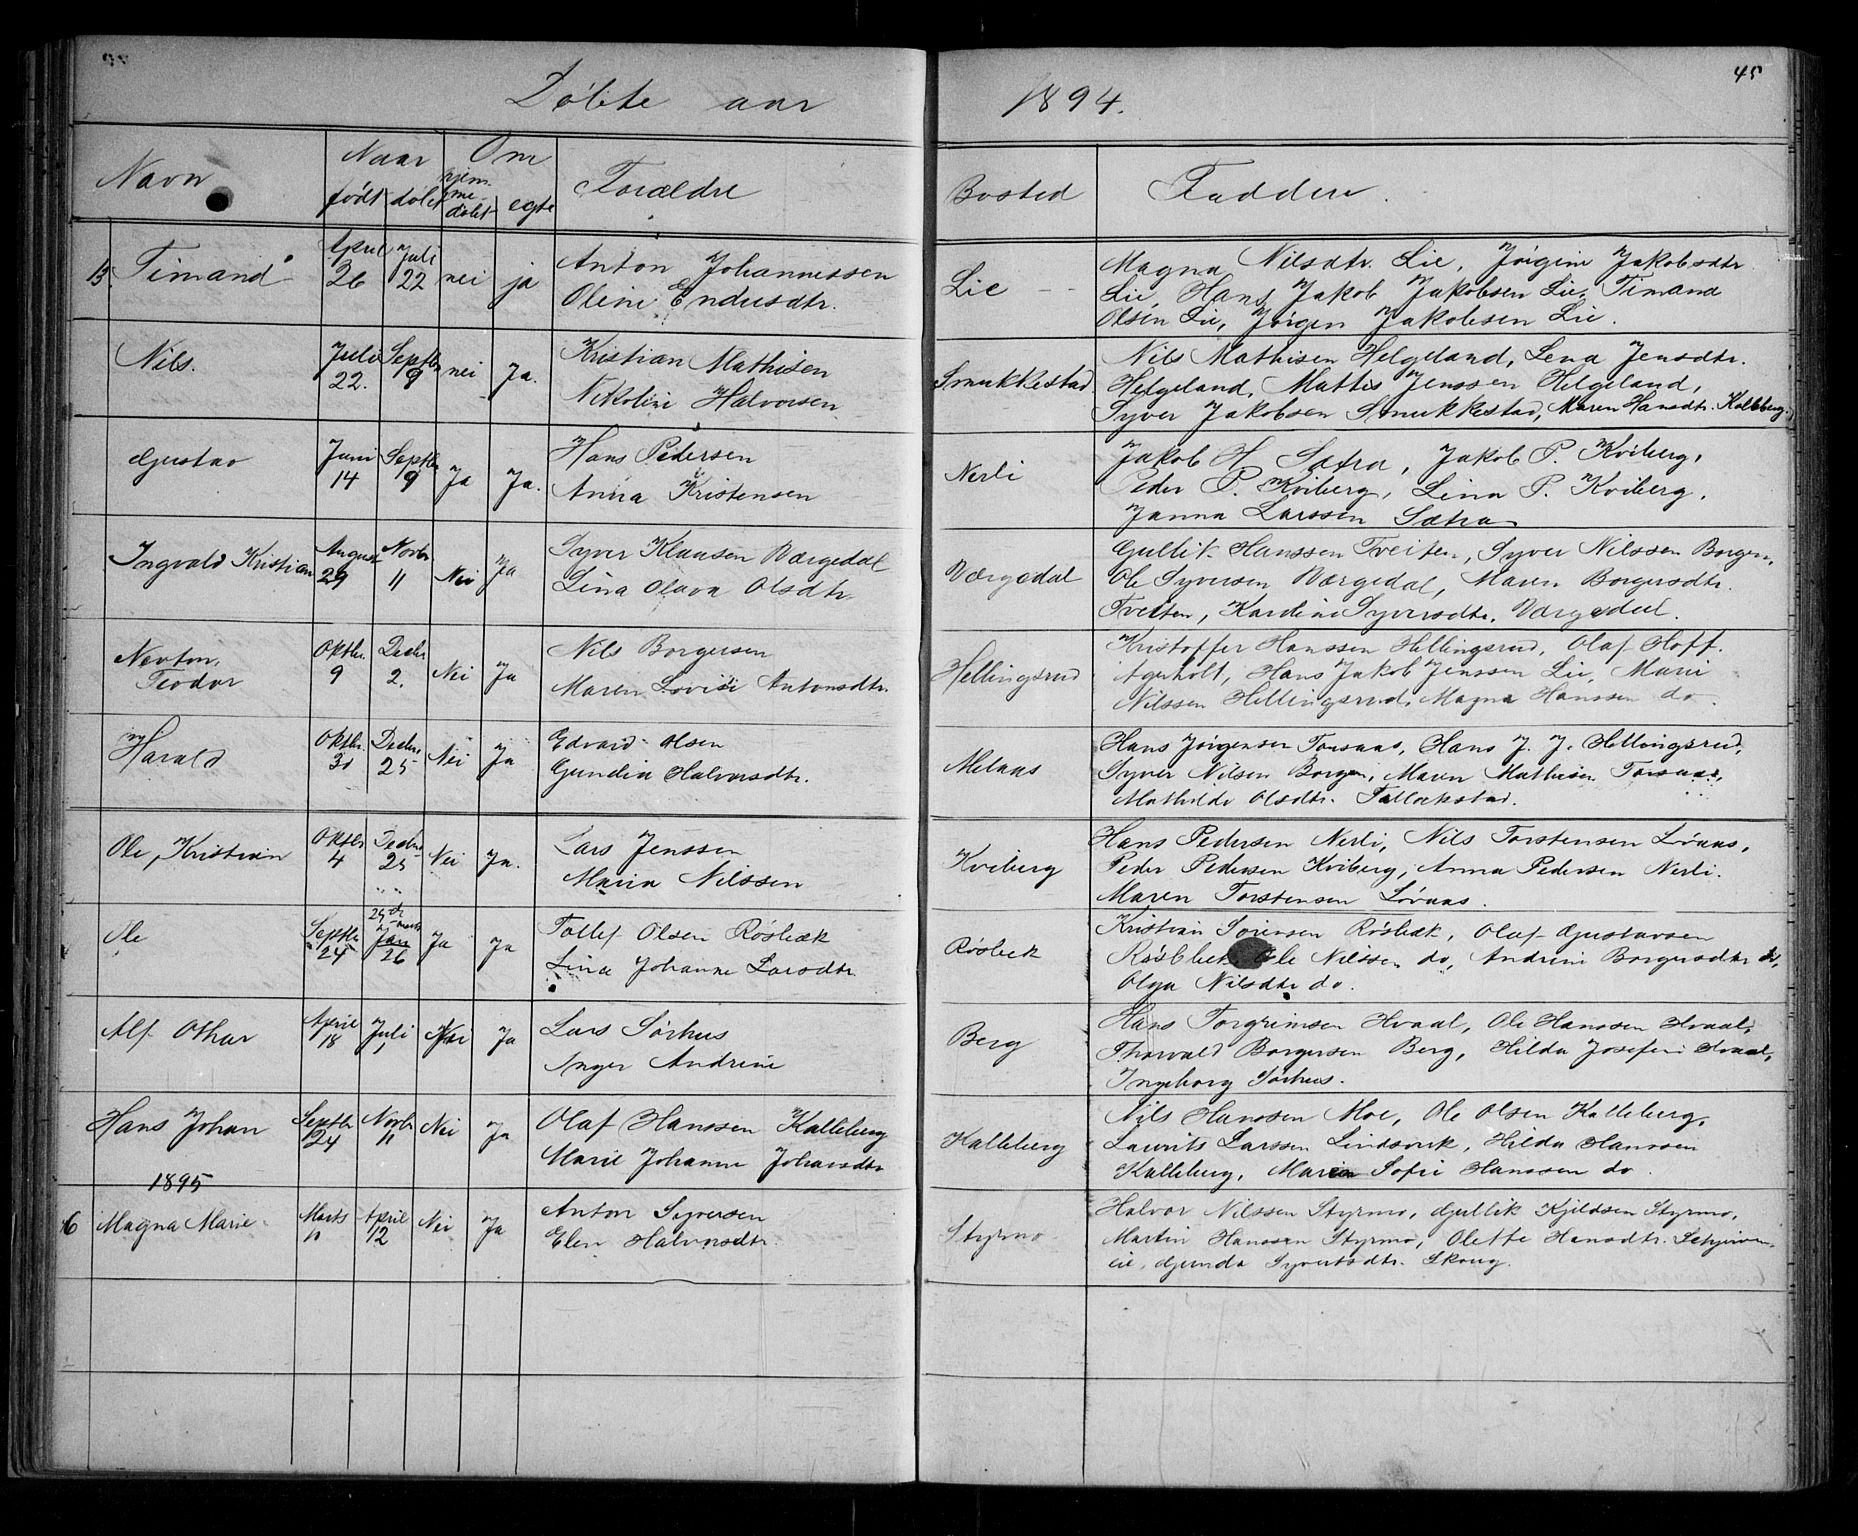 Døbte aar 1894. 45
Navn Naar født døbt Om hjemmedøbt egte Forældre Bosted Faddere.
13. Timand April 26 Juli 22 nei ja Anton Johannessen Lie Magna Nilsdtr. Lie, Jørgine Jakobsdtr.
Oline Endusdtr. Lie, Hans Jakob Jakobsen Lie, Timand
Olsen Lie, Jørgen Jakobsen Lie.
Nils. Juli 22. Septbr 9 nei Ja. Kristian Mathisen Smukkestad Nils Mathisen Helgeland, Lena Jensdtr.
Nikoline Halvorsen Helgeland, Mattis Jenssen Helgeland,
Syver Jakobsen Smukkestad, Maren Hansdtr. Kalleberg.
Gustav Juni 14 Septbr 9 Ja Ja. Hans Pedersen Nerli Jakob H. Sætra, Jakob P. Kviberg,
Anna Kristensen Peder P. Kviberg, Lina P. Kviberg,
Janna Larssen Sætra
Ingvald Kristian August 29 Novbr 11 Nei Ja Syver Klausen Værgedal Værgedal Gullik Hanssen Tveiten, Syver Nilssen Borgen,
Lina Olava Olsdtr. Ole Syversen Værgedal, Maren Borgersdtr.
Tveiten, Kardine Syversdtr. Værgedal.
Nevton, Teodor Oktbr. 9 Decbr 2. Nei Ja Nils Borgersen Hellingsrud Kristoffer Hanssen Hellingsrud, Olaf Hoff.
Maren Lovise Antonsdtr. Agerholt, Hans Jakob Jenssen Lie, Marie
Nilssen Hellingsrud, Magna Hanssen do.
Harald Oktbr. 30 Decbr 25 Nei Ja Edvard Olsen Melaas Hans Jørgensen Torsaas, Hans J. J. Hellingsrud,
Gundia Halvorsdtr. Syver Nilsen Borgen, Maren Mathisen Torsaas,
Mathilde Olsdtr. Tallakstad.
Ole, Kristian Oktbr 4 Decbr 25 Nei Ja. Lars Jenssen Kviberg Hans Pedersen Nerli, Nils Torstensen Løvaas,
Maria Nilssen Peder Pedersen Kviberg, Anna Pedersen Nerli.
Maren Torstensen Løvaas.
Ole Septbr 24 Jan 26 Ja Ja Tollef Olsen Røsbæk Røsbek Kristian Sørensen Røsbæk, Olaf Gustavsen
Lina Johanne Larsdtr Røsbek, Ole Nilssen do, Andrine Borgersdtr do,
Olga Nilsdtr do.
Alf Othar April 18 Juli 1 Nei Ja Lars Sørhus Berg Hans Torgrimsen Hvaal, Ole Hanssen Hvaal,
Inger Andrine Thorvald Borgersen Berg, Hilda Josefine Hvaal,
Ingeborg Sørhus.
Hans Johan Septbr 24 Novbr 11 Nei Ja Olaf Hanssen Kalleberg Kalleberg Nils Hanssen Moe, Ole Olsen Kalleberg,
Marie Johanne Johansdtr Laurits Larssen Lindsvik, Hilda Hanssen
Kalleberg, Maren Sofie Hanssen do.
1895
6 Magna Marie Marts 11 April 12 Nei Ja Anton Syversen Styrmo Halvor Nilssen Styrmo, Gullik Kjeldsen Styrmo,
Elen Halvorsdtr. Martin Hanssen Styrmo, Olette Hansdtr.
Gunda Syvertsdtr. Skoug.